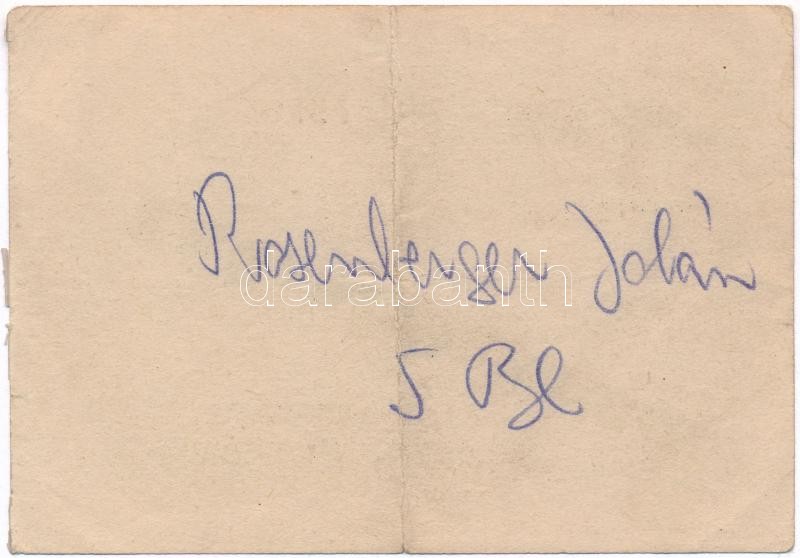 Rosenberger Jolán
darabanth
5 Bl